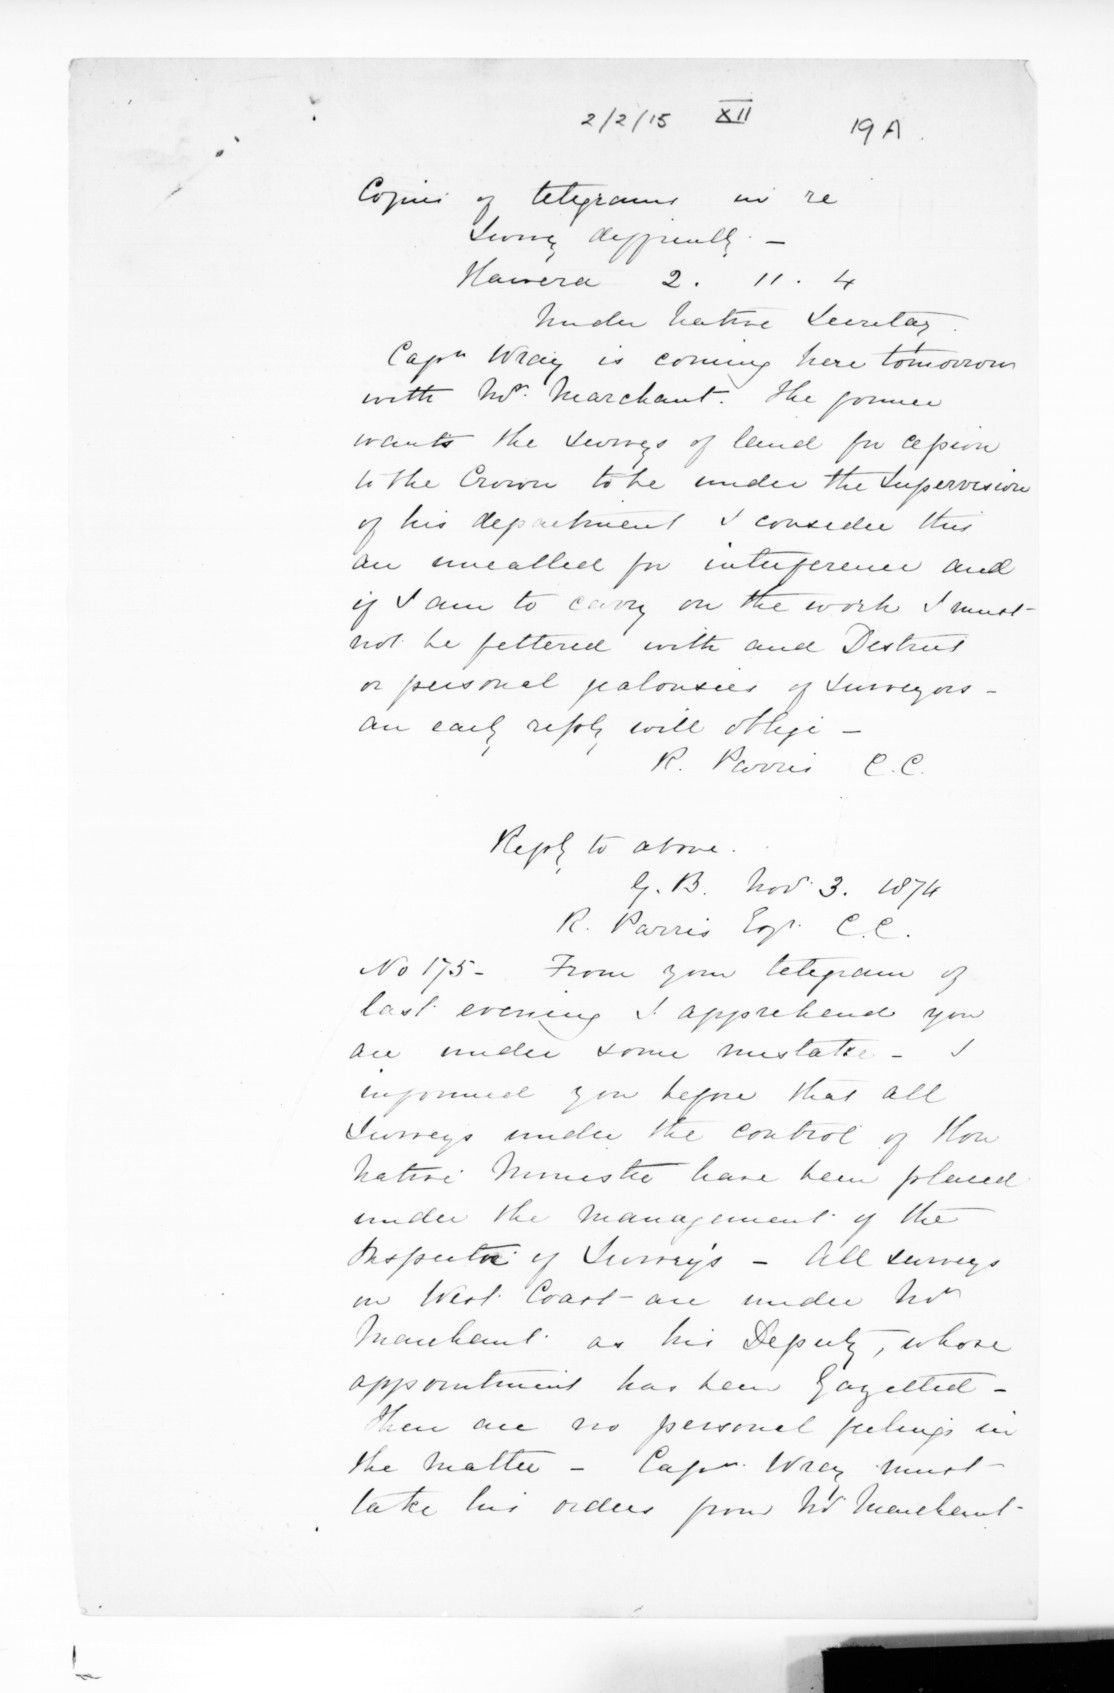 2/2/15 XII 19A.
Copies of telegrams in re
Survey difficulty. –
Hawera 2. 11. 4
Under Native Secretary.
Captn Wray is coming here tomorrow
with Mr. Marchant. The former
wants the surveys of land for cession
to the Crown to be under the Supervision
of his department I consider this
an uncalled for interference and
if I am to carry on the work I must
not be fettered with and District
or personal jealousies of Surveyors –
an early reply will oblige –
R. Parris C.C.
Reply to above.
G. B. Novr 3. 1874
R. Parris Esqr. C.C.
No 175 – From your telegram of
last evening I apprehend you
are under some mistake – I
informed you before that all
Surveys under the control of Hon
Native Minister have been placed
under the management of the
Inspector of Surveys – All surveys
on West Coast are under Mr
Marchant as his Deputy, whose
appointment has been Gazetted –
There are no personal feelings in
the matter – Captn. Wray must
take his orders from Mr Marchant